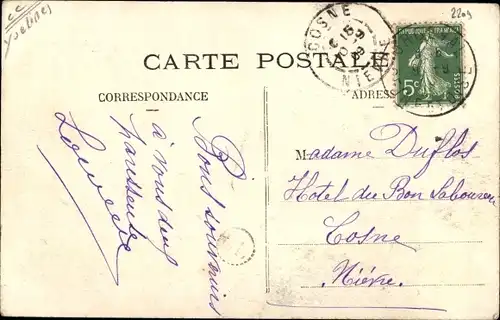 Yvelines
2209
COSNE
NIEVRE
RÉPUBLIQUE FRANÇAISE
5c
POSTES
CARTE POSTALE
CORRESPONDANCE
ADRESSE
Bons souvenirs
à vous deux
Madame Duflos
Hôtel du Bon Laboureur
Cosne
Nièvre